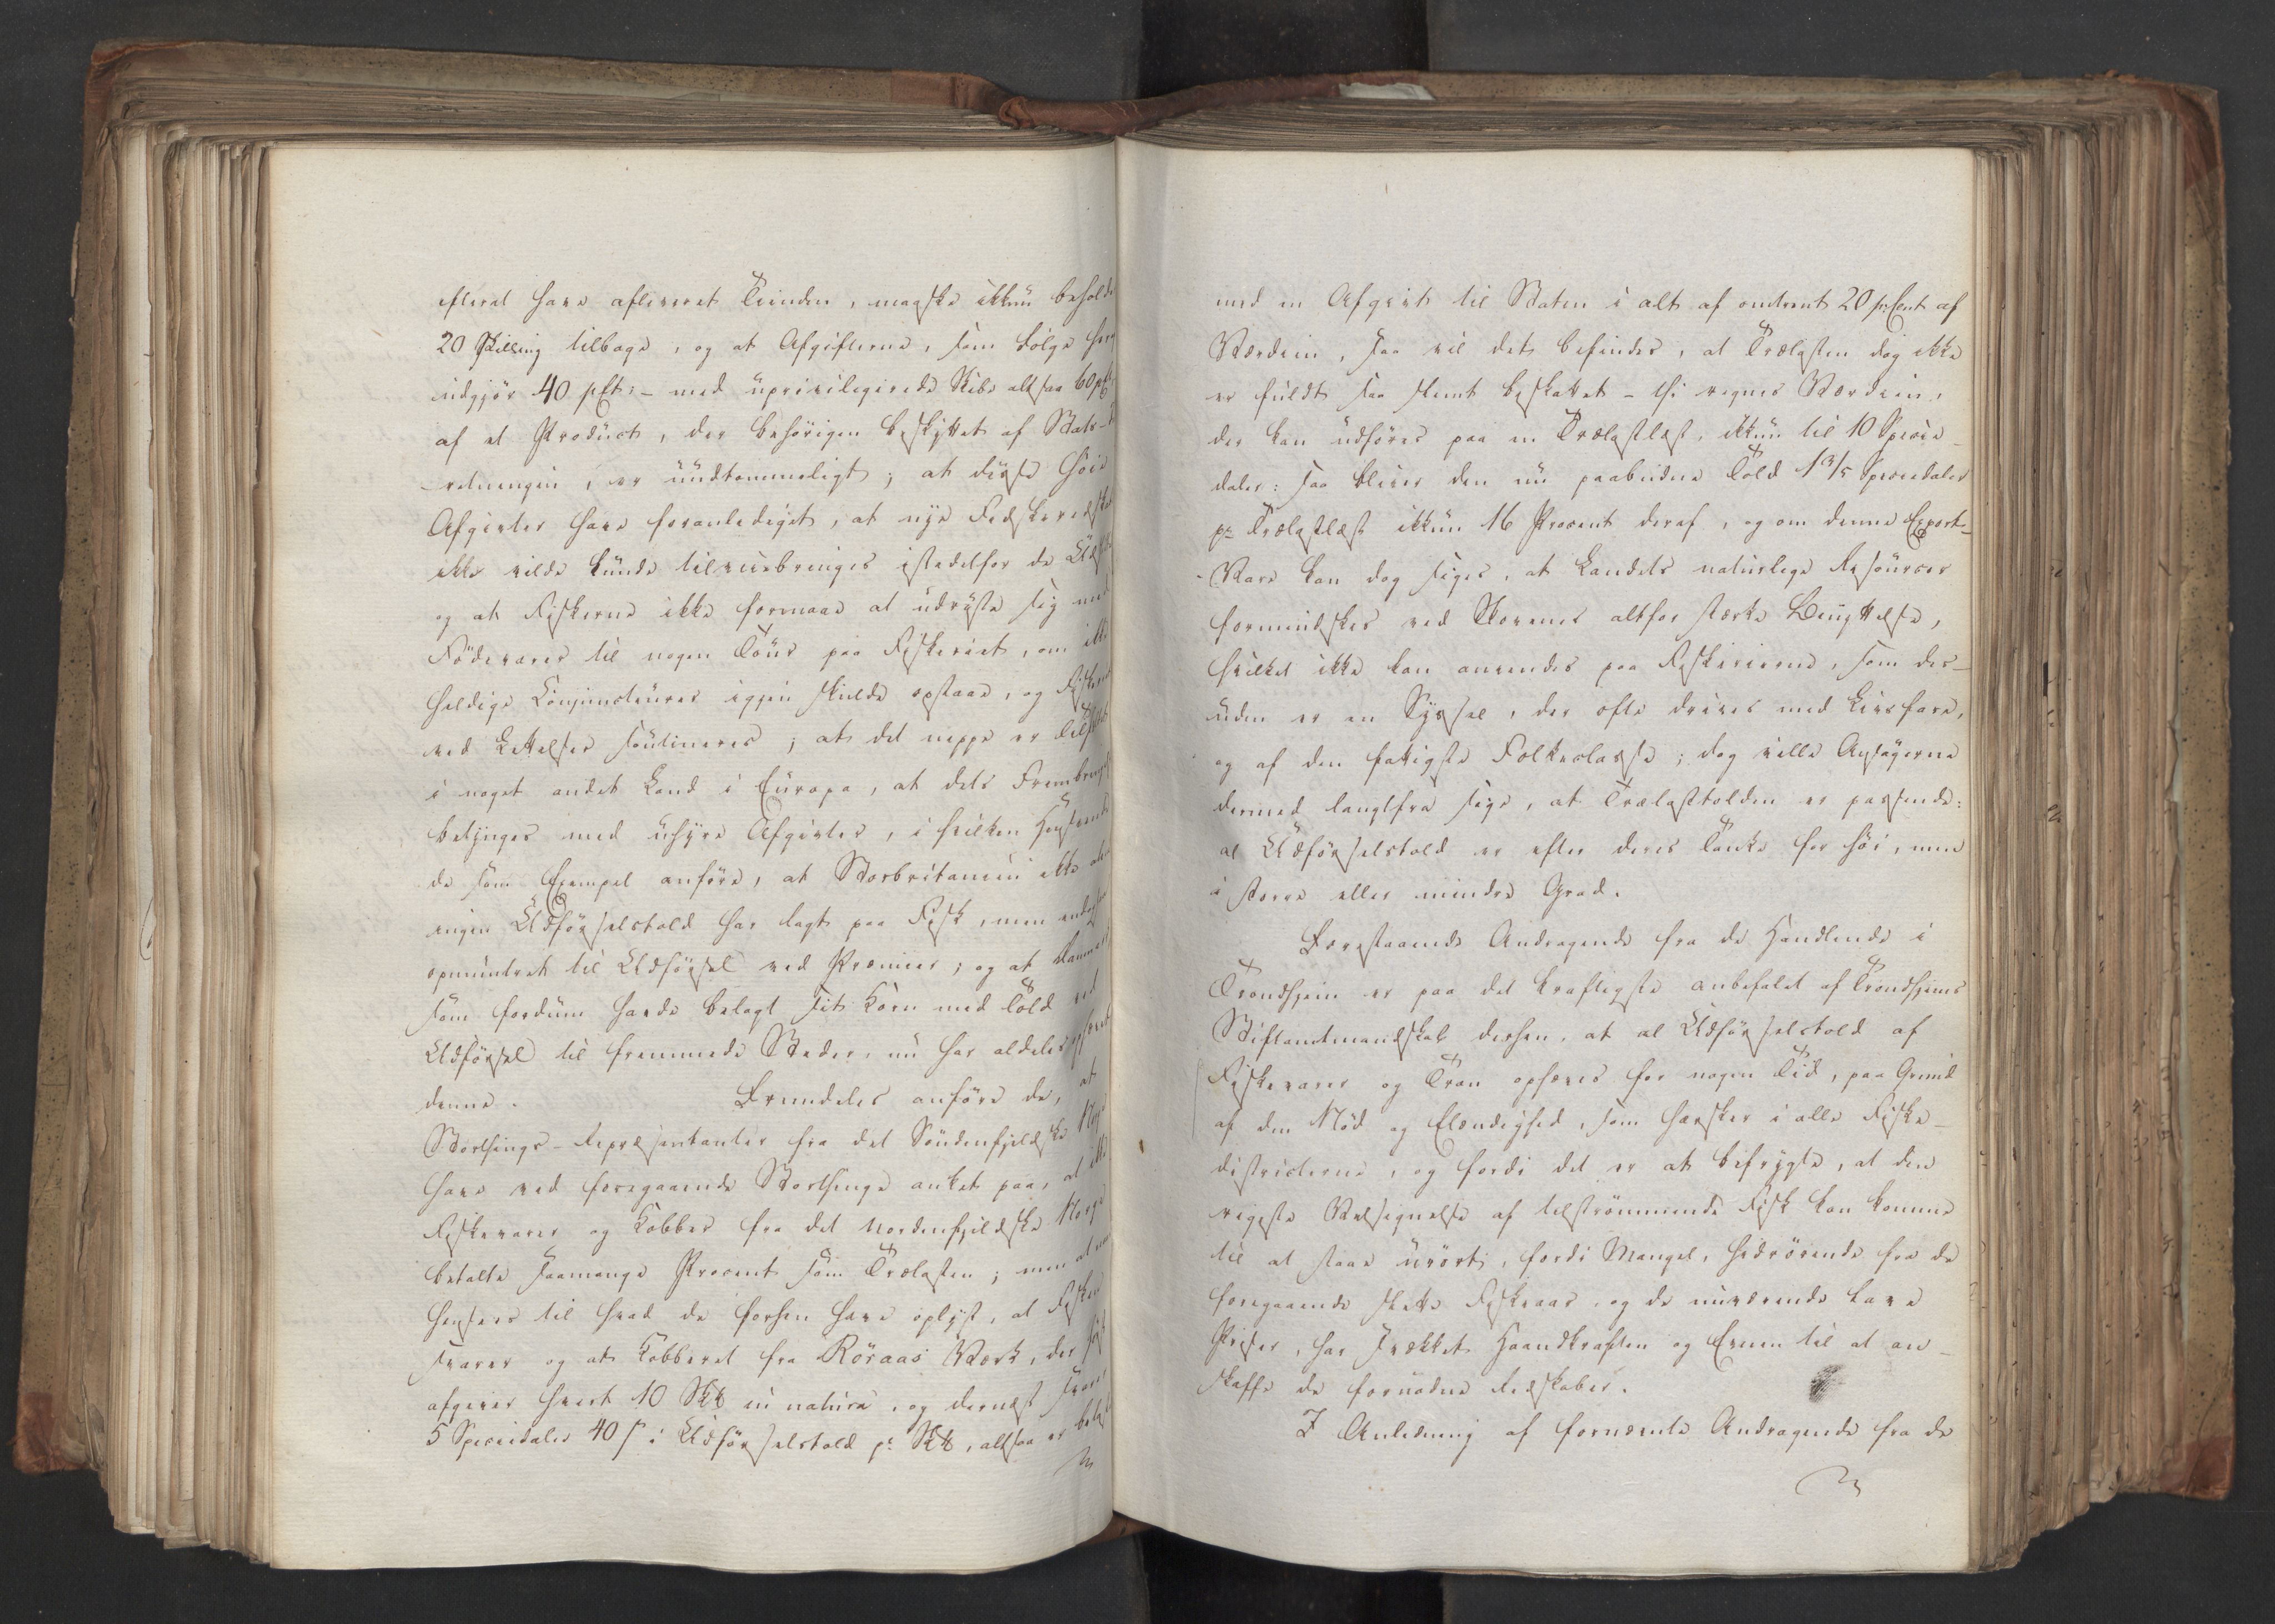 efterat have afleveret Tienden, maaske ikkun beholde
20 Skilling tilbage, og at Afgifterne, som Følge heraf
udgjør 40 pCt: – med upriviligerede Skibe altsaa 60 pCt:
af et Product, der behørigen beskyttet af Stats-
redningen, er uudtømmeligt; at disse høie
Afgivter have foranlediget, at nye Fedskeredskab
ikke vilde kunde tilveiebringes istedetfor de Udslidte
og at Fiskerne ikke formaae at udruste sig med
Fødevarer til nogen Tour paa Fiskeriet, om ikke
heldige Conjuncturer igjen skulde opstaae, og Fiskerne
ved Lettelser soutineres; at det neppe er Tilfældet
i noget andet Land i Europa, at dets Frembringelser
betynges med uhyre Afgivter, i hvilken Henseende
de som Exempel anføre, at Storbritanien ikke alene
ingen Udførselstold har lagt paa Fisk, men endog
opmuntret til Udførsel ved Præmier; og at Danmark
som fordum havde belagt sit Korn med Told ved
Udførsel til fremmede Steder, nu har aldeles ophævet
denne. Fremdeles anføre de, at
Storthings-Repræsentanter fra det Søndenfjeldske Norge
have ved foregaaende Storthinge anket paa, at ikke
Fiskevarer og Kobber fra det Nordenfjeldske Norge
betalte saamange Procent som Trælasten; men at man
henseer til hvad de forhen have oplyst, at Fisken
svarer og at Kobberet fra Röraas Værk, der først
afgiver hvert 10 Sk℔ in natura, og dernæst svarer
5 Speciedaler 40 ß i Udførselstold pr Sk℔, altsaa er belagt
med en Afgivt til Staten i alt af omtrent 20 prCent af
Værdien, saa vil det befindes, at Trælasten dog ikke
er fuldt saa slemt beskattet – thi regnes Værdien,
der kan udføres paa en Trælastlæst, ikkun til 10 Specie-
daler: saa bliver den nu paabudne Told 1 3/5 Speciedaler
pr Trælastlæst ikkun 16 Procent deraf, og om denne Export-
Vare kan dog siges, at Landets naturlige Resourcer
formindskes ved Skovenes altfor stærke Benyttelse,
hvilket ikke kan anvendes paa Fiskerierne, som des-
uden er en Syssel, der ofte drives med Livsfare,
og af den fattigste Folkeclasse; dog ville Ansøgerne
dermed langtfra sige, at Trælasttolden er passende:
al Udførselstold er efter deres Tanke for høi, men
i større eller mindre Grad.
Forestaaende Andragende fra de Handlende i
Trondhjem er paa det kraftigste anbefalet af Trondhjems
Stiftamtmandskab derhen, at al Udførselstold af
Fiskevarer og Tran ophæves for nogen Tid, paa Grund
af den Nød og Elendighed, som hersker i alle Fiske-
districterne, og fordi det er at befrygte, at den
rigeste Velsignelse af tilstrømmende Fisk kan komme
til at staae urørt, fordi Mangel, hidrørende fra de
foregaaende slette Fiskeaar, og de nuværende lave
Priser, har svækket Haandkraften og Evnen til at an-
skaffe de fornødne Redskaber.
I Anledning af fornævnte Andragende fra de